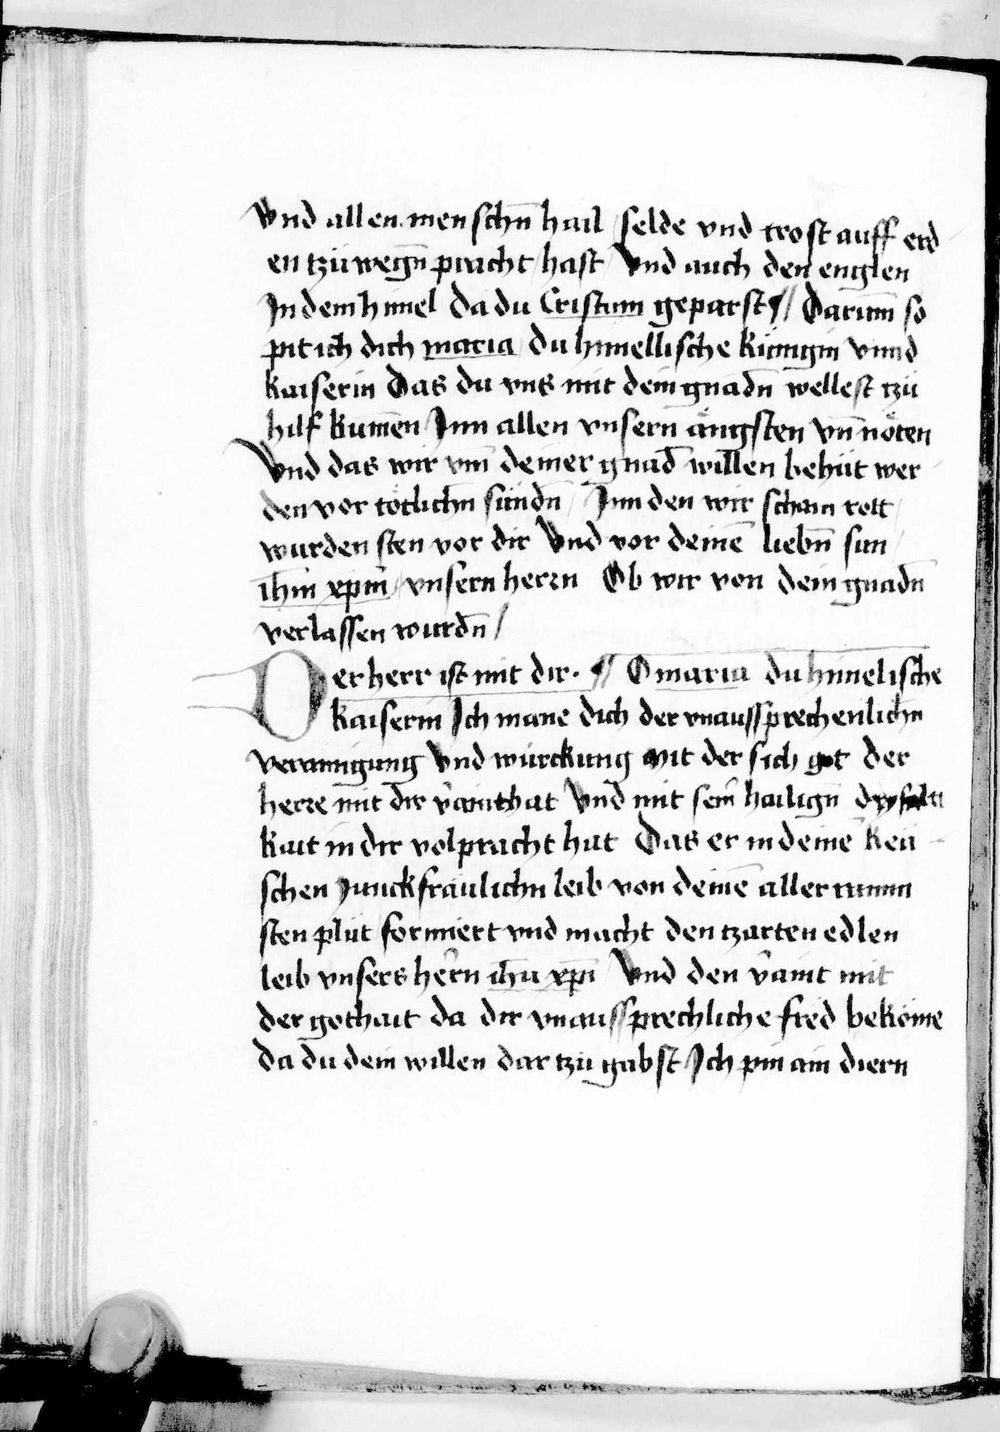 Vnd allen menschn̄ hail / selde vnd trost auff erd
en tzu wegn̄ pracht / hast / Vnd auch den englen
In dem himel da du Cristum geparst ¶ // Darum̄ so
pit ich dich maria / du himellische kunigin vnnd
kaiserin Das du vns mit dein gnadn̄ wellest tzu
hilf kumen̄ / Inn allen vnsern ängsten vn̄ nöten
Vnd das wir vm̄ deiner gnad̄ willen behüt wer
den vor tötlichn̄ sündn̄ / Inn den wir scham rott /
wurden sten vor dir Vnd vor deinē liebn̄ sun /
ih̄m xp̄m / vnsern herrn Ob wir von dein gnadn̄
verlassen wurdn̄ /
Der herr ist mit dir · ¶ O maria du himelische
kaiserin Ich mane dich der vnaussprechenlichn̄
verainigung Vnd würckung mit der sich got der
herre mit dir v̄aint hat Vnd mit sein̄ hailign̄ dryfalti
kait in dir volpracht hat Das er in deinē keü
schen Junckfräulichn̄ leib von deinē aller rainn
sten plüt formiert vnd macht den tzarten edlen
leib vnsers her̄n ih̄u xp̄i Vnd den v̄aint mit
der gothait da dir vnaussprechliche fred bekōme
da du dein willen dar tzu gabst / Ich pin ain diern